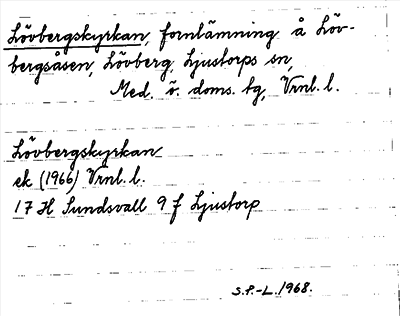 Lövbergskyrkan, fornlämning å Löv-
bergsåsen, Lövberg, Ljustorps sn,
Med. ö. doms. tg, Vrnl. l.
Lövbergskyrkan
ek (1966) Vrnl. l.
17 H Sundsvall 9 f Ljustorp
S.P.-L. 1968.